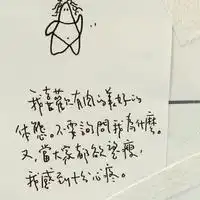 我喜歡有肉的美好的
体態。不要詢問我為什麼。
又,當大家都欲望瘦,
我感到十分心疼。